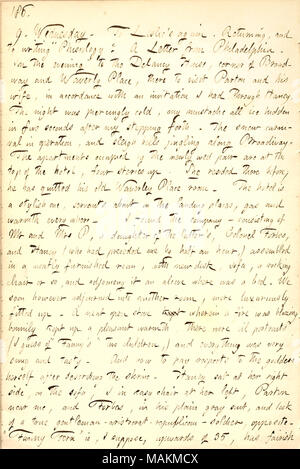 186.
9. Wednesday. To Leslie's again. Returning, and
to writing "Phisiology": A Letter from Philadelphia.
In the evening to the Delancy House, corner of Broad-
way and Waverly Place, there to visit Parton and his
wife, in accordance with an invitation I had through Haney.
The night was piercingly cold, my mustache all ice hidden
in five seconds after my stepping forth. The snow carni-
val in operation, and sleigh bells jingling along Broadway.
The apartments occupied by the newly wed pair are at the
top of the hotel, four stories up. He resided there before,
he has quitted his old Waverley Place room. The hotel is
a stylish one, servants about on the landing places, gas and
warmth everywhere. I found the company consisting of
Mr and Mrs P, a daughter of the latter's, Colonel Forbes,
and Haney (who had preceded me by half an hour,) assembled
in a neatly furnished room, with new desk sofa, a rocking
chair or so, and adjoining it an alcove where was a bed. We
soon however adjourned into another room, more luxuriously
fitted up. A neat open stove wherein a fire was blazing
bravely kept up a pleasant warmth. There were oil portraits
(I guess of Fanny's two children,) and everything was very
snug and tasty. And now to pay respects to the goddess
herself after describing the shrine. Haney sat at her right
side, on the sofa, I in easy chair at her left, Parton
near me, and Forbes, in his plain gray suit, and look
of a true gentleman-aristocrat-republican-soldier, opposite.
"Fanny Fern" is, I suppose, upwards of 35, has fairish
alamy
Image ID: MAKMCX
www.alamy.com